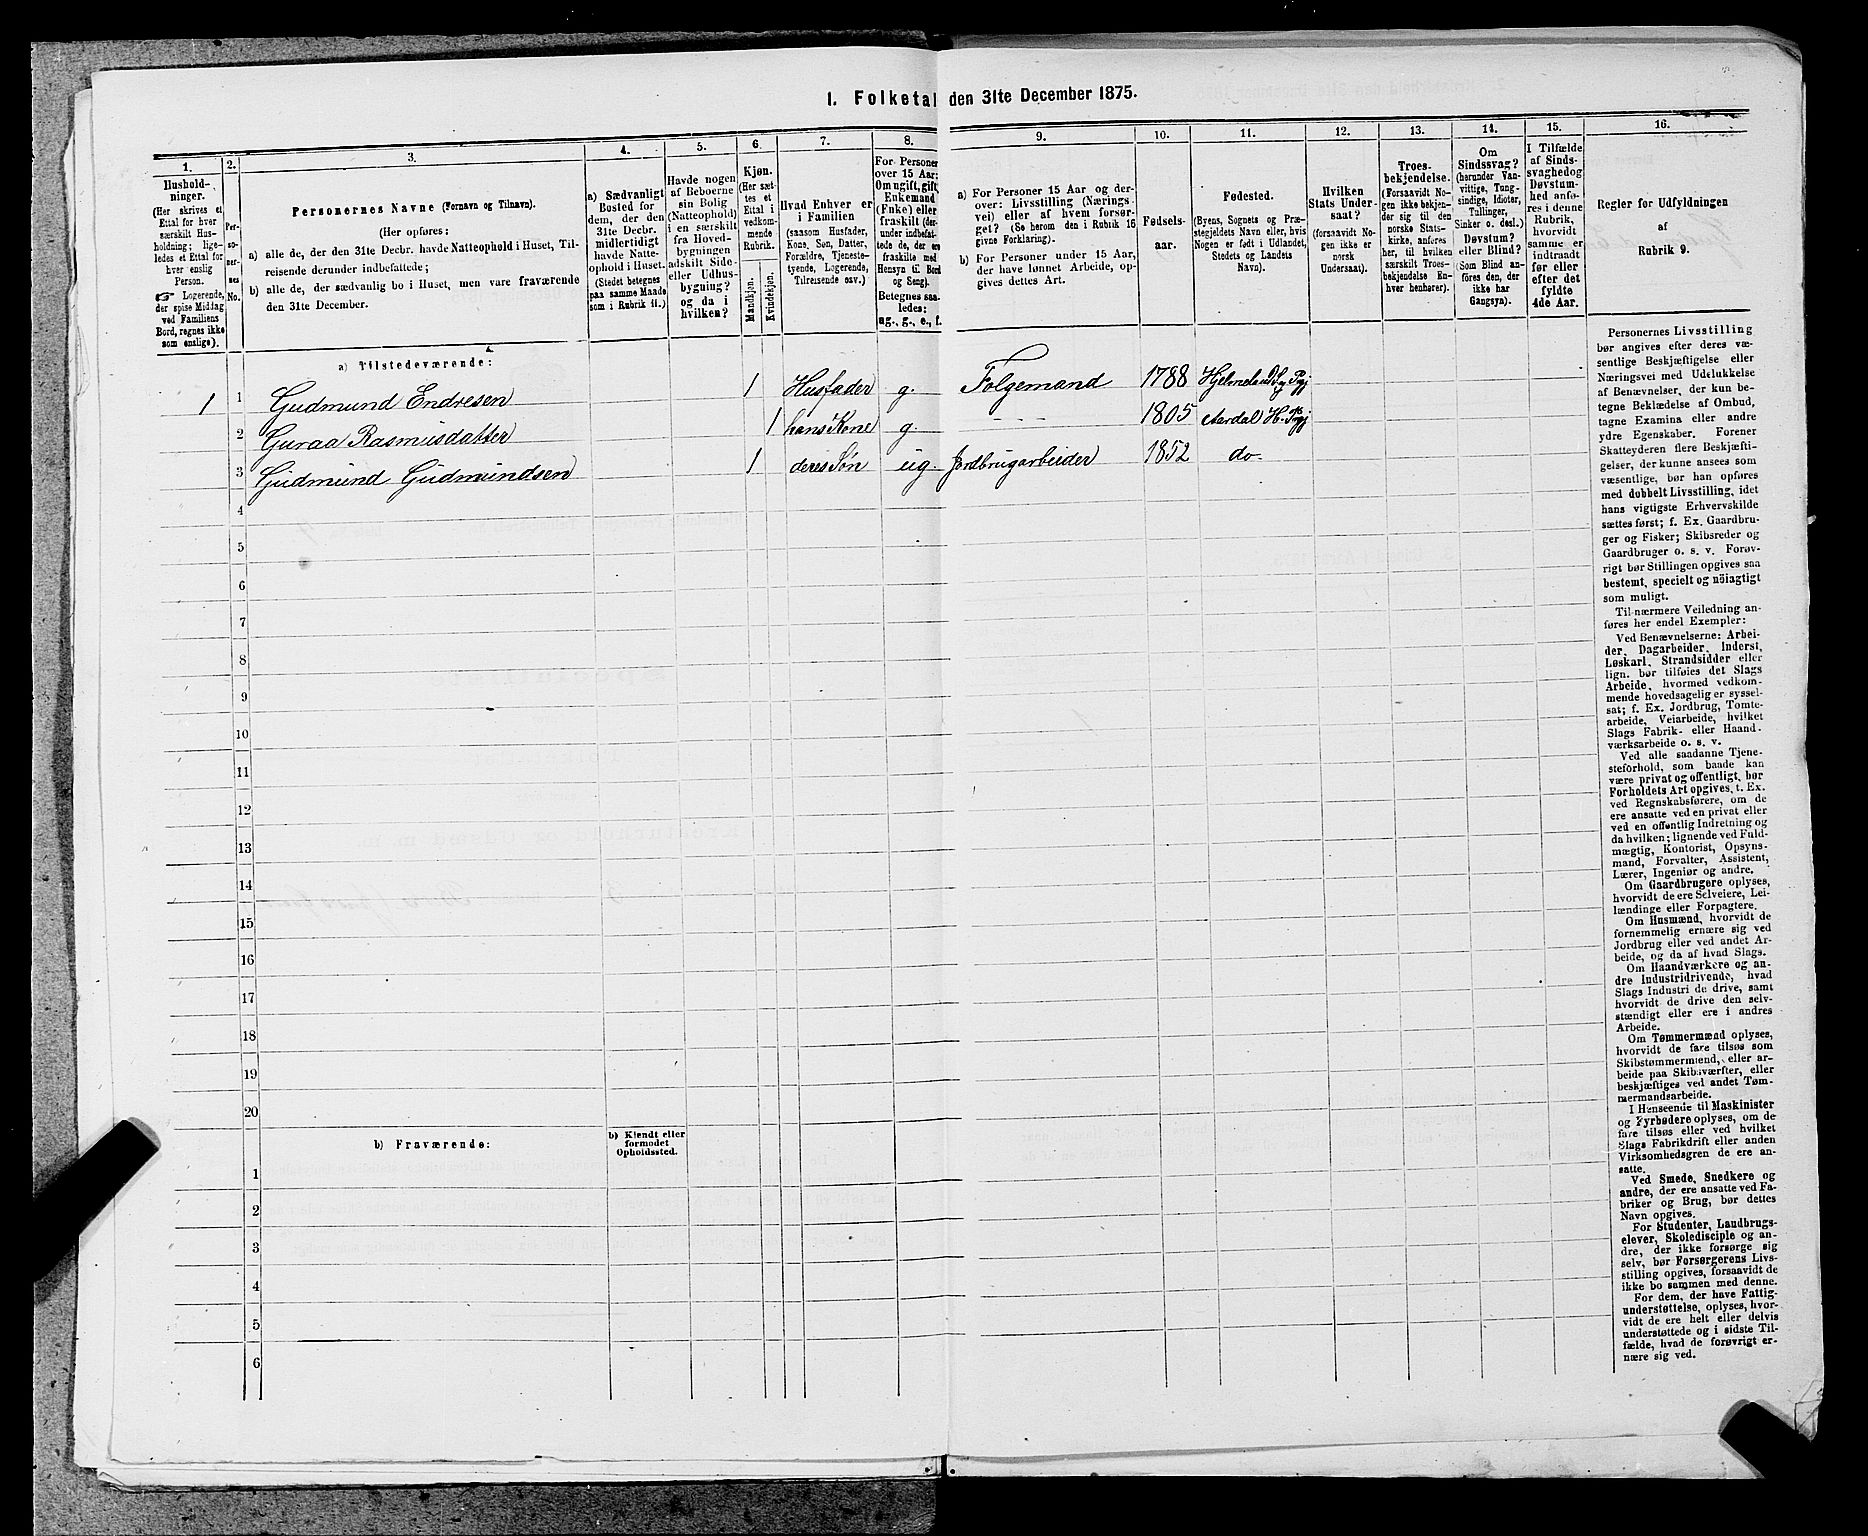 1. Folketal den 31te December 1875.
1.
Hushold-
ninger.
(Her skrives et
Ettal for hver
særskilt Hus-
holdning; lige-
ledes et Ettal for
hver enslig
Person.
☞ Logerende,
der spise Middag
ved Familiens
Bord, regnes ikke
som enslige).
2.
Per-
so-
ner-
nes
No.
3.
Personernes Navne (Fornavn og Tilnavn).
(Her opføres:
a) alle de, der den 31te Decbr. havde Natteophold i Huset, Til-
reisende derunder indbefattede;
b) alle de, der sædvanlig bo i Huset, men vare fraværende
den 31te December.
4.
a) Sædvanligt
Bosted for
dem, der den
31te Decbr.
midlertidigt
havde Natte-
ophold i Huset.
(Stedet betegnes
paa samme Maade
som i Rubrik 11.)
5.
Havde nogen
af Beboerne
sin Bolig
(Natteophold)
i en særskilt
fra Hoved-
bygningen
adskilt Side-
eller Udhus-
bygning?
og da i
hvilken?
6.
Kjøn.
(Her sæt-
tes et
Ettal i
vedkom-
mende
Rubrik.
Mandkjøn.
Kvindekjøn.
7.
Hvad Enhver er
i Familien
(saasom Husfader,
Kone, Søn, Datter,
Forældre, Tjeneste-
tyende, Logerende,
Tilreisende osv.)
8.
For Personer
over 15 Aar;
Om ugift, gift,
Enkemand
(Enke) eller
fraskilt (der-
under indbefat-
tede de, der ere
fraskilte med
Hensyn til Bord
og Seng).
Betegnes saa-
ledes:
ug., g., e., f.
9.
a) For Personer 15 Aar og der-
over: Livsstilling (Nærings-
vei) eller af hvem forsør-
get? (Se herom den i Rubrik 16
givne Forklaring).
b) For Personer under 15 Aar,
der have lønnet Arbeide, op-
gives dettes Art.
10.
Fødsels-
aar.
11.
Fødested.
(Byens, Sognets og Præ-
stegjeldets Navn eller, hvis
Nogen er født i Udlandet,
Stedets og Landets
Navn).
12.
Hvilken
Stats Under-
saat?
(forsaavidt No-
gen ikke er
norsk
Undersaat).
13.
Troes-
bekjendelse.
(Forsaavidt No-
gen ikke bekjen-
der sig til den
norske Stats-
kirke, anføres
her, til hvilken
særskilt Troes-
bekjendelse En-
hver henhører).
14.
Om
Sindssvag?
(herunder Van-
vittige, Tung-
sindige, Idioter,
Tullinger,
Sinker o. desl.).
Døvstum?
eller Blind?
(Som Blind an-
føres den, der
ikke har
Gangsyn).
15.
I Tilfælde
af Sinds-
svaghed og
Døvstum-
hed anfø-
res i denne
Rubrik,
hvorvidt
samme er
indtraadt
før eller
efter det
fyldte
4de Aar.
16.
Regler for Udfyldningen
af
Rubrik 9.
a) Tilstedeværende:
1 1 Gudmund Endresen 1 Husfader g. Folgemand 1788 Hjelmeland
2 Guraa Rasmusdatter 1 hans Kone g. - - - 1805 Aardal H.
3 Gudmund Gudmundsen 1 deres Søn ug. Jordbrugarbeider 1852 do.
4
5
6
7
8
9
10
11
12
13
14
15
16
17
18
19
20
b) Fraværende:
b) Kjendt eller
formodet
Opholdssted.
1
2
3
4
5
6
Personernes Livsstilling
bør angives efter deres væ-
sentlige Beskjæftigelse eller
Næringsvei med Udelukkelse
af Benævnelser, der kun be-
tegne Beklædelse af Ombud,
tagne Examina eller andre
ydre Egenskaber. Forener
Skatteyderen flere Beskjæfti-
gelser, der kunne ansees som
væsentlige, bør han opføres
med dobbelt Livsstilling, idet
hans vigtigste Erhvervskilde
sættes først; f. Ex. Gaardbru-
ger og Fisker; Skibsreder og
Gaardbruger o. s. v. Forøv-
rigt bør Stillingen opgives saa
bestemt, specielt og nöiagtigt
som muligt.
Til nærmere Veiledning an-
føres her endel Exempler:
Ved Benævnelserne: Arbei-
der, Dagarbeider, Inderst,
Løskarl, Strandsidder eller
lign. bør tilføies det Slags
Arbeide, hvormed vedkom-
mende hovedsagelig er syssel-
sat; f. Ex. Jordbrug, Tomte-
arbeide, Veiarbeide, hvilket
Slags Fabrik- eller Haand-
værksarbeide o. s. v.
Ved alle saadanne Tjene-
steforhold, som baade kan
være privat og offentligt, bør
Forholdets Art opgives, t. Ex.
ved Regnskabsførere, om de
ere ansatte ved en privat eller
ved en offentlig Indretning og
da hvilken; lignende ved Fuld-
mægtig, Kontorist, Opsyns-
mand, Forvalter, Assistent,
Lærer, Ingeniør og andre.
Om Gaardbrugere oplyses,
hvorvidt de ere Selveiere, Lei-
lændinge eller Forpagtere.
Om Husmænd, hvorvidt de
fornemmelig ernære sig ved
Jordbrug eller ved andet Ar-
beide, og da af hvad Slags.
Om Haandværkere og an-
dre Industridrivende, hvad
Slags Industri de drive, samt
hvorvidt de drive den selv-
stændigt eller ere i andres
Arbeide.
Om Tømmermænd oplyses,
hvorvidt de fare tilsøs som
Skibstømmermænd, eller ar-
beide paa Skibsværfter, eller
beskjæftiges ved andet Tøm-
mermandsarbeide.
I Henseende til Maskinister
og Fyrbødere oplyses, om de
fare tilsøs eller ved hvilket
Slags Fabrikdrift eller anden
Virksomhedsgren de ere an-
satte.
Ved Smede, Snedkere og
andre, der ere ansatte ved Fa-
briker og Brug, bør dettes
Navn opgives.
For Studenter, Landbrugs-
elever, Skoledisciple og an-
dre, der ikke forsørge sig
selv, bør Forsørgerens Livs-
stilling opgives, forsaavidt de
ikke bo sammen med denne.
For dem, der have Fattig-
understøttelse, oplyses, hvor-
vidt de ere helt eller delvis
understøttede og i sidste Til-
fælde, hvad de forøvrigt er-
nære sig ved.